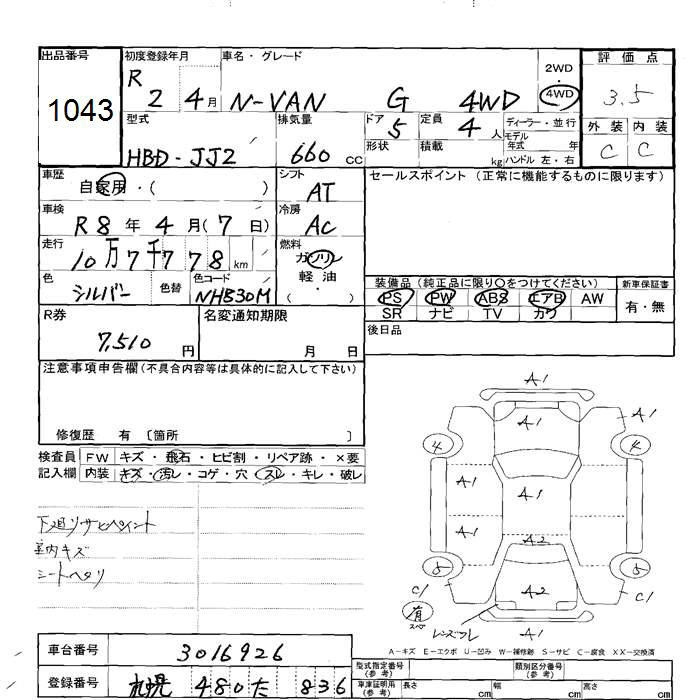 出品番号 初度登録年月 車名・グレード 2WD・4WD 評価点
1043 R 2 4月 N-VAN G 4WD 3.5
型式 排気量 ドア 定員 ディーラー・並行 外装 内装
HBD-JJ2 660 cc 5 4人 モデル年式 年 C C
形状 積載 kg ハンドル 左・右
車歴 自家用・( ) シフト AT セールスポイント (正常に機能するものに限ります)
車検 R8年4月(7日) 冷房 AC
走行 10万7千778km 燃料 ガソリン・軽油・( )
色 シルバー 色替 色コード NHB30M
装備品 (純正品に限り○をつけてください) 新車保証書
PS PW ABS エアB AW 有・無
SR ナビ TV カワ
R券 7,510円 名変通知期限 月 日 後日品
注意事項申告欄(不具合内容等は具体的に記入して下さい)
修復歴 有 〔箇所 〕
検査員記入欄 FW キズ・飛石・ヒビ割・リペア跡・×要
内装 キズ・汚レ・コゲ・穴・スレ・キレ・破レ
下廻りサビペイント
室内キズ
シートヘタリ
A1
A1 A1 A1
4 4
A1 A1
A1 A2
5 5
C1 A2 C1
有 スペ
レンズスレ A1
A-キズ E-エクボ U-凹み W-補修跡 S-サビ C-腐食 XX-交換済
車台番号 3016926
型式指定番号(参考) 類別区分番号(参考)
登録番号 札幌 480 た 836
車庫証明用(参考) 長さ cm 幅 cm 高さ cm